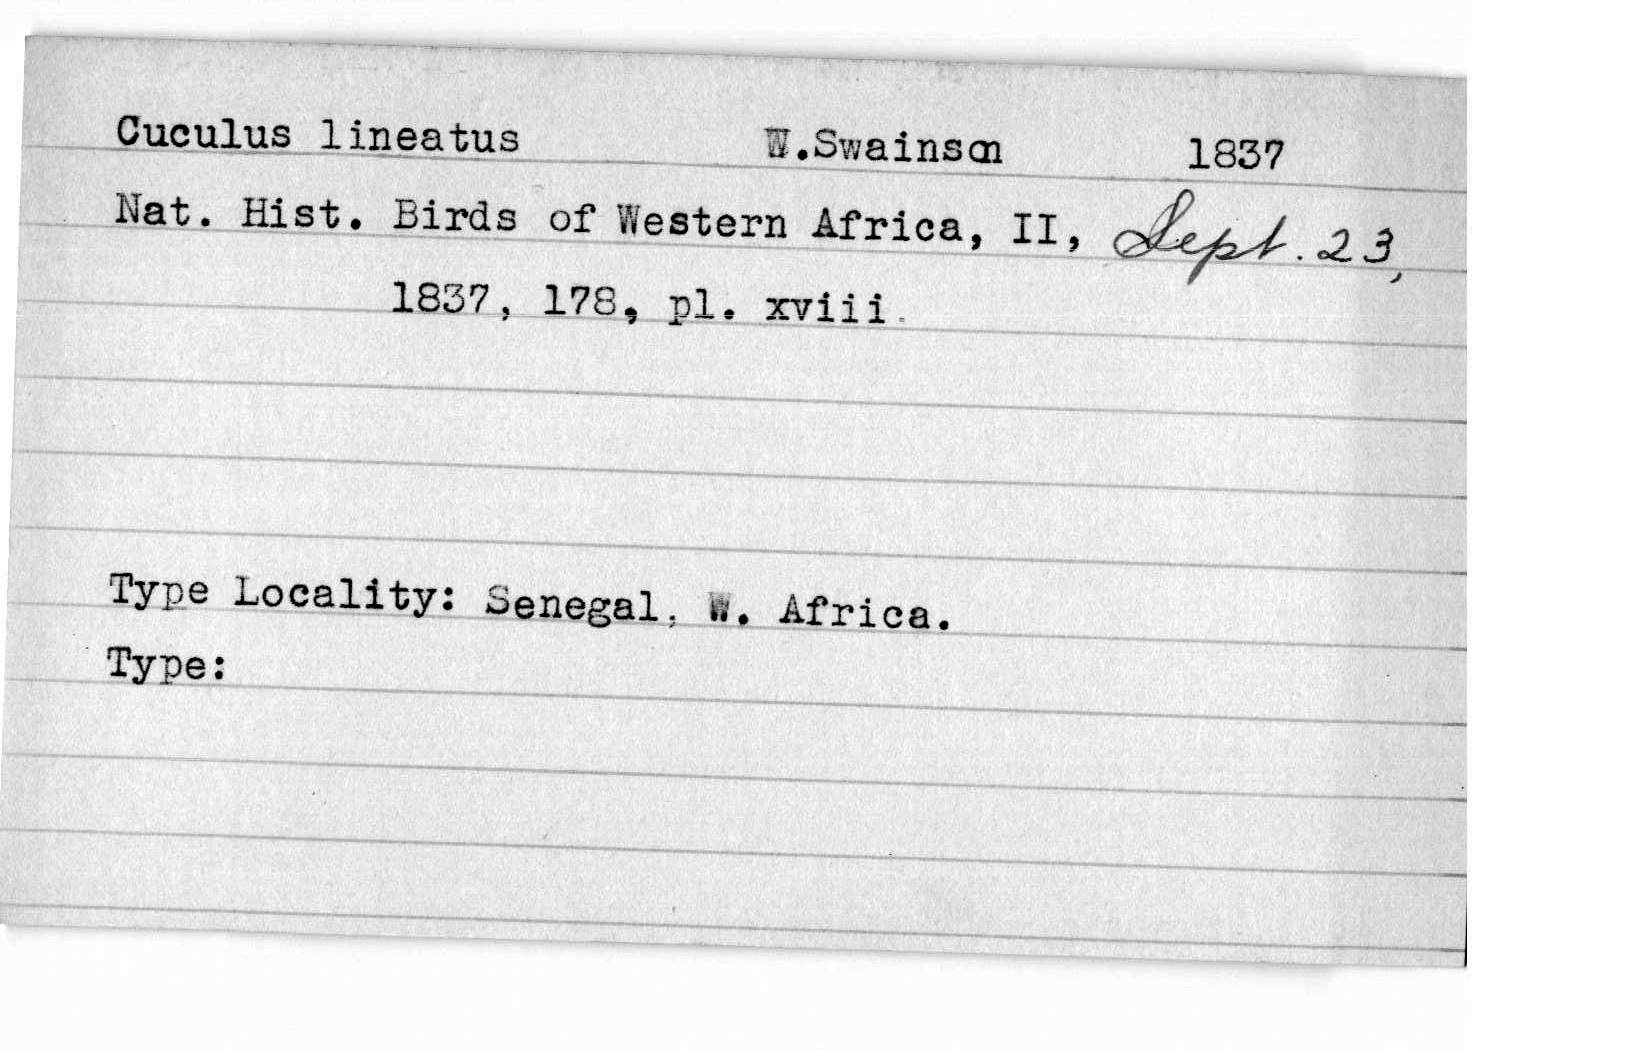 Cuculus lineatus W.Swainson 1837
Nat. Hist. Birds of Western Africa, II, Sept. 23,
1837, 178, pl. xviii.
Type Locality: Senegal, W. Africa.
Type: